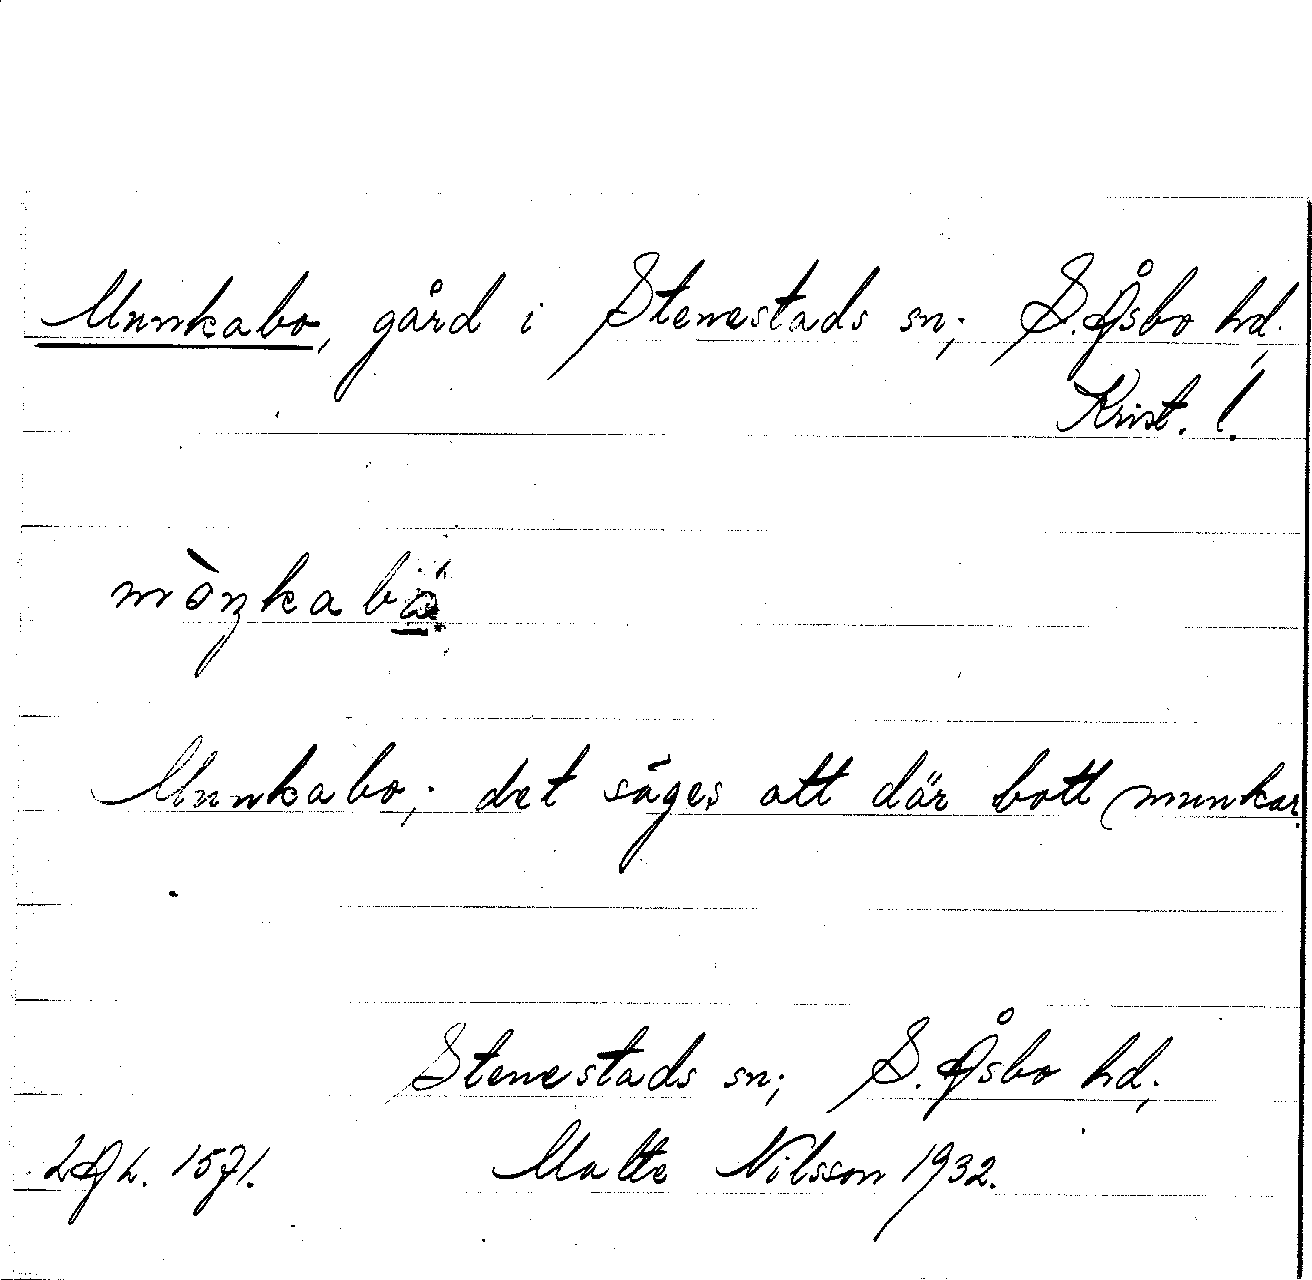 Munkabo, gård i Stenestads sn; S. Åsbo hd,
Krist. l.
Munkabo; det säges att där bott munkar.
Stenestads sn; S. Åsbo hd;
LAL. 1571. Malte Nilsson 1932.